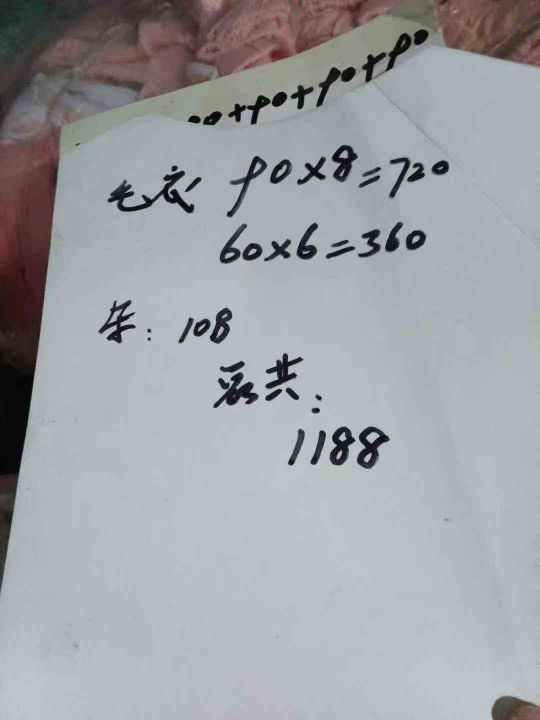 0+90+90+90
毛衣 90×8=720
60×6=360
杂：108
共：
1188